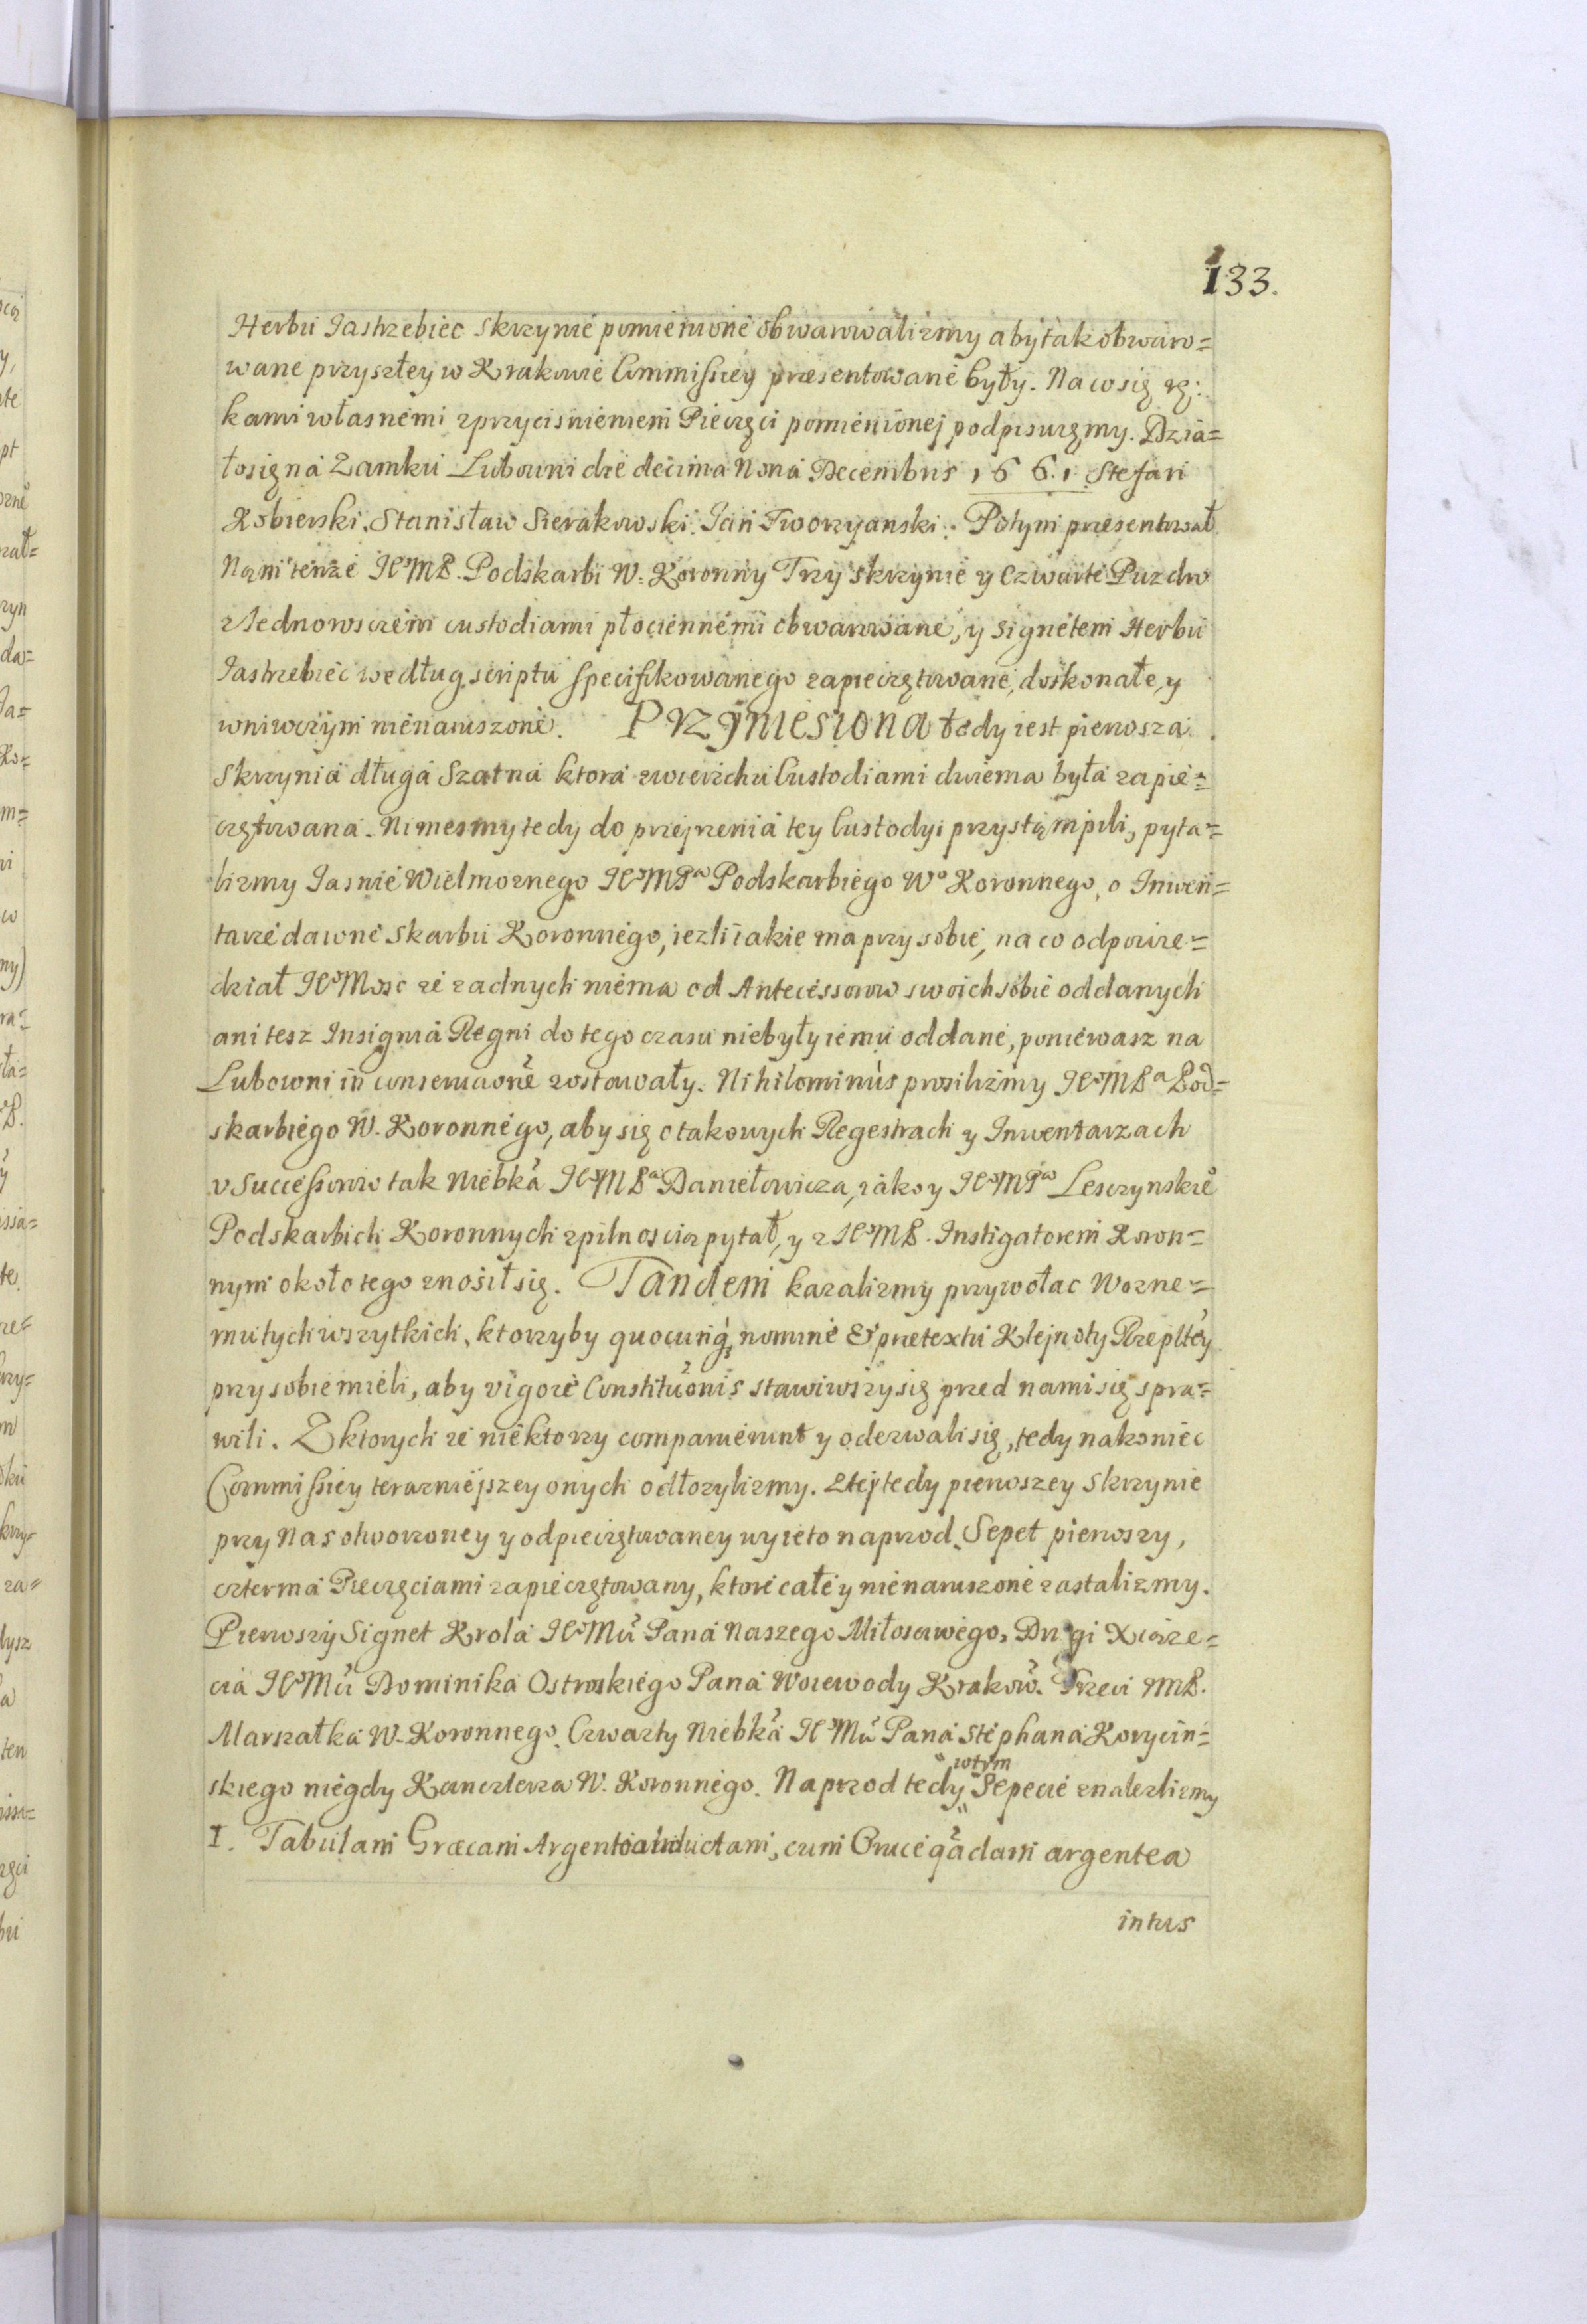 133.
Herbu Jastrzebiec skrzynie pomienione obwarowalizmy aby tak obwaro=
wane przyszłey w Krakowie Commissiey præsentowane były. Na co się rę:
kami własnemi z przycisnieniem Pieczęci pomienionej podpisuięmy. Dzia=
ło się na Zamku Lubowni die decima Nona Decembris 1661. Stefan
Kobierski. Stanisław Sierakowski. Jan Tworzyanski. Potym præsentował
Nam tenże JeoMP. Podskarbi W. Koronny Trzy skrzynie y Czwarte Puzdro
z Jednorożcem custodiami płociennemi obwarowane, y Signetem Herbu
Jastrzebiec według scriptu specifikowanego zapieczętowane, doskonałe, y
wniwczym nienaruszone. Przyniesiona tedy iest pierwsza
Skrzynia długa Szatna ktora zwierzchu Custodiami dwiema była zapie=
czętowana. Nimesmy tedy do przejrzenia tey Custodyi przystąmpili, pyta=
lizmy Jasnie Wielmoznego JeoMPa Podskarbiego Wo Koronnego, o Inwen=
tarze dawne skarbu Koronnego, iezli iakie ma przy sobie, na co odpowie=
dział JeoMosc ze zadnych niema od Antecessorow swoich sobie oddanych
ani tesz Insignia Regni do tego czasu niebyły iemu oddane, poniewasz na
Lubowni in conservaone zostawały. Nihilominus prosilizmy JeoMPa Pod=
skarbiego W. Koronnego, aby się o takowych Regestrach y Inwentarzach
v Successorow tak Niebka JeoMPa Daniełowicza, iako y JeoMPa Lesczynskie
Podskarbich Koronnych z pilnoscią pytał, y z JeoMP. Instigatorem Koron=
nym około tego znosił się. Tandem kazalizmy przywołac Wozne=
mu tych wszytkich, ktorzyby quocunq nomine & prætextu Klejnoty Rzeplitey
przy sobie mieli, aby vigore Constituonis stawiwszy się przed nami się spra=
wili. Z ktorych ze niektorzy comparuerunt y odezwali się, tedy nakoniec
Commissiey terazniejszey onych odłozylizmy. Z tej tedy pierwszey skrzynie
przy Nas otworzoney y odpieczętowaney wyieto naprzod Sepet pierwszy,
czterma Pieczęciami zapieczętowany, ktore całe y nienaruszone zastalizmy.
Pierwszy Signet Krola JeoMci Pana Naszego Miłosciwego, Drugi Xiąze=
cia JeoMci Dominika Ostroskiego Pana Woiewody Krakow. Trzeci JMP.
Marszałka W. Koronnego. Czwarty Niebka JeoMci Pana Stephana Korycin=
skiego niegdy Kanclerza W. Koronnego. Naprzod tedy wtym Sepecie znalezlizmy
I. Tabulam Græcam Argento inductam, cum Cruce qadam argentea
intus